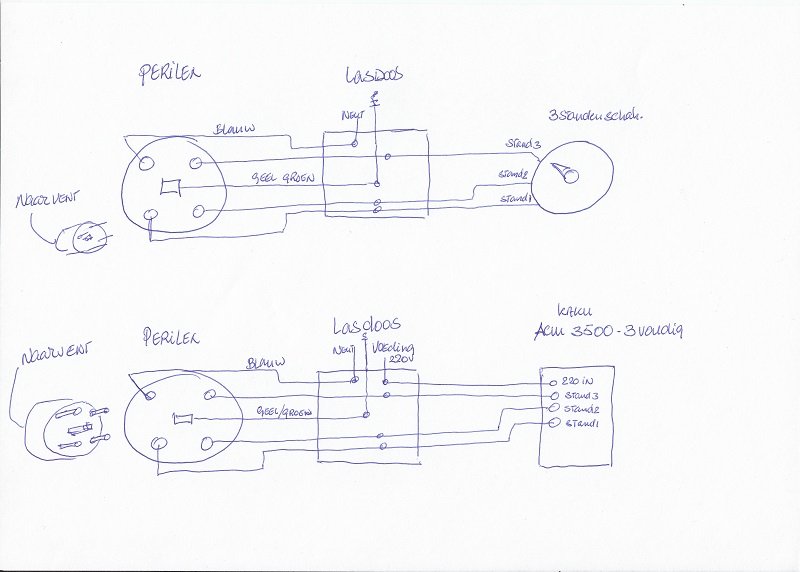 PERILEX
LASDOOS
NEUT
3 Standenschak.
BLAUW
STAND3
GEEL GROEN
STAND2
STAND1
NAAR VENT
PERILEX
Lasdoos
KAKU
ACM 3500-3 voudig
NAAR VENT
NEUT
VOEDING
220V
BLAUW
220 IN
STAND3
GEEL/GROEN
STAND2
STAND1